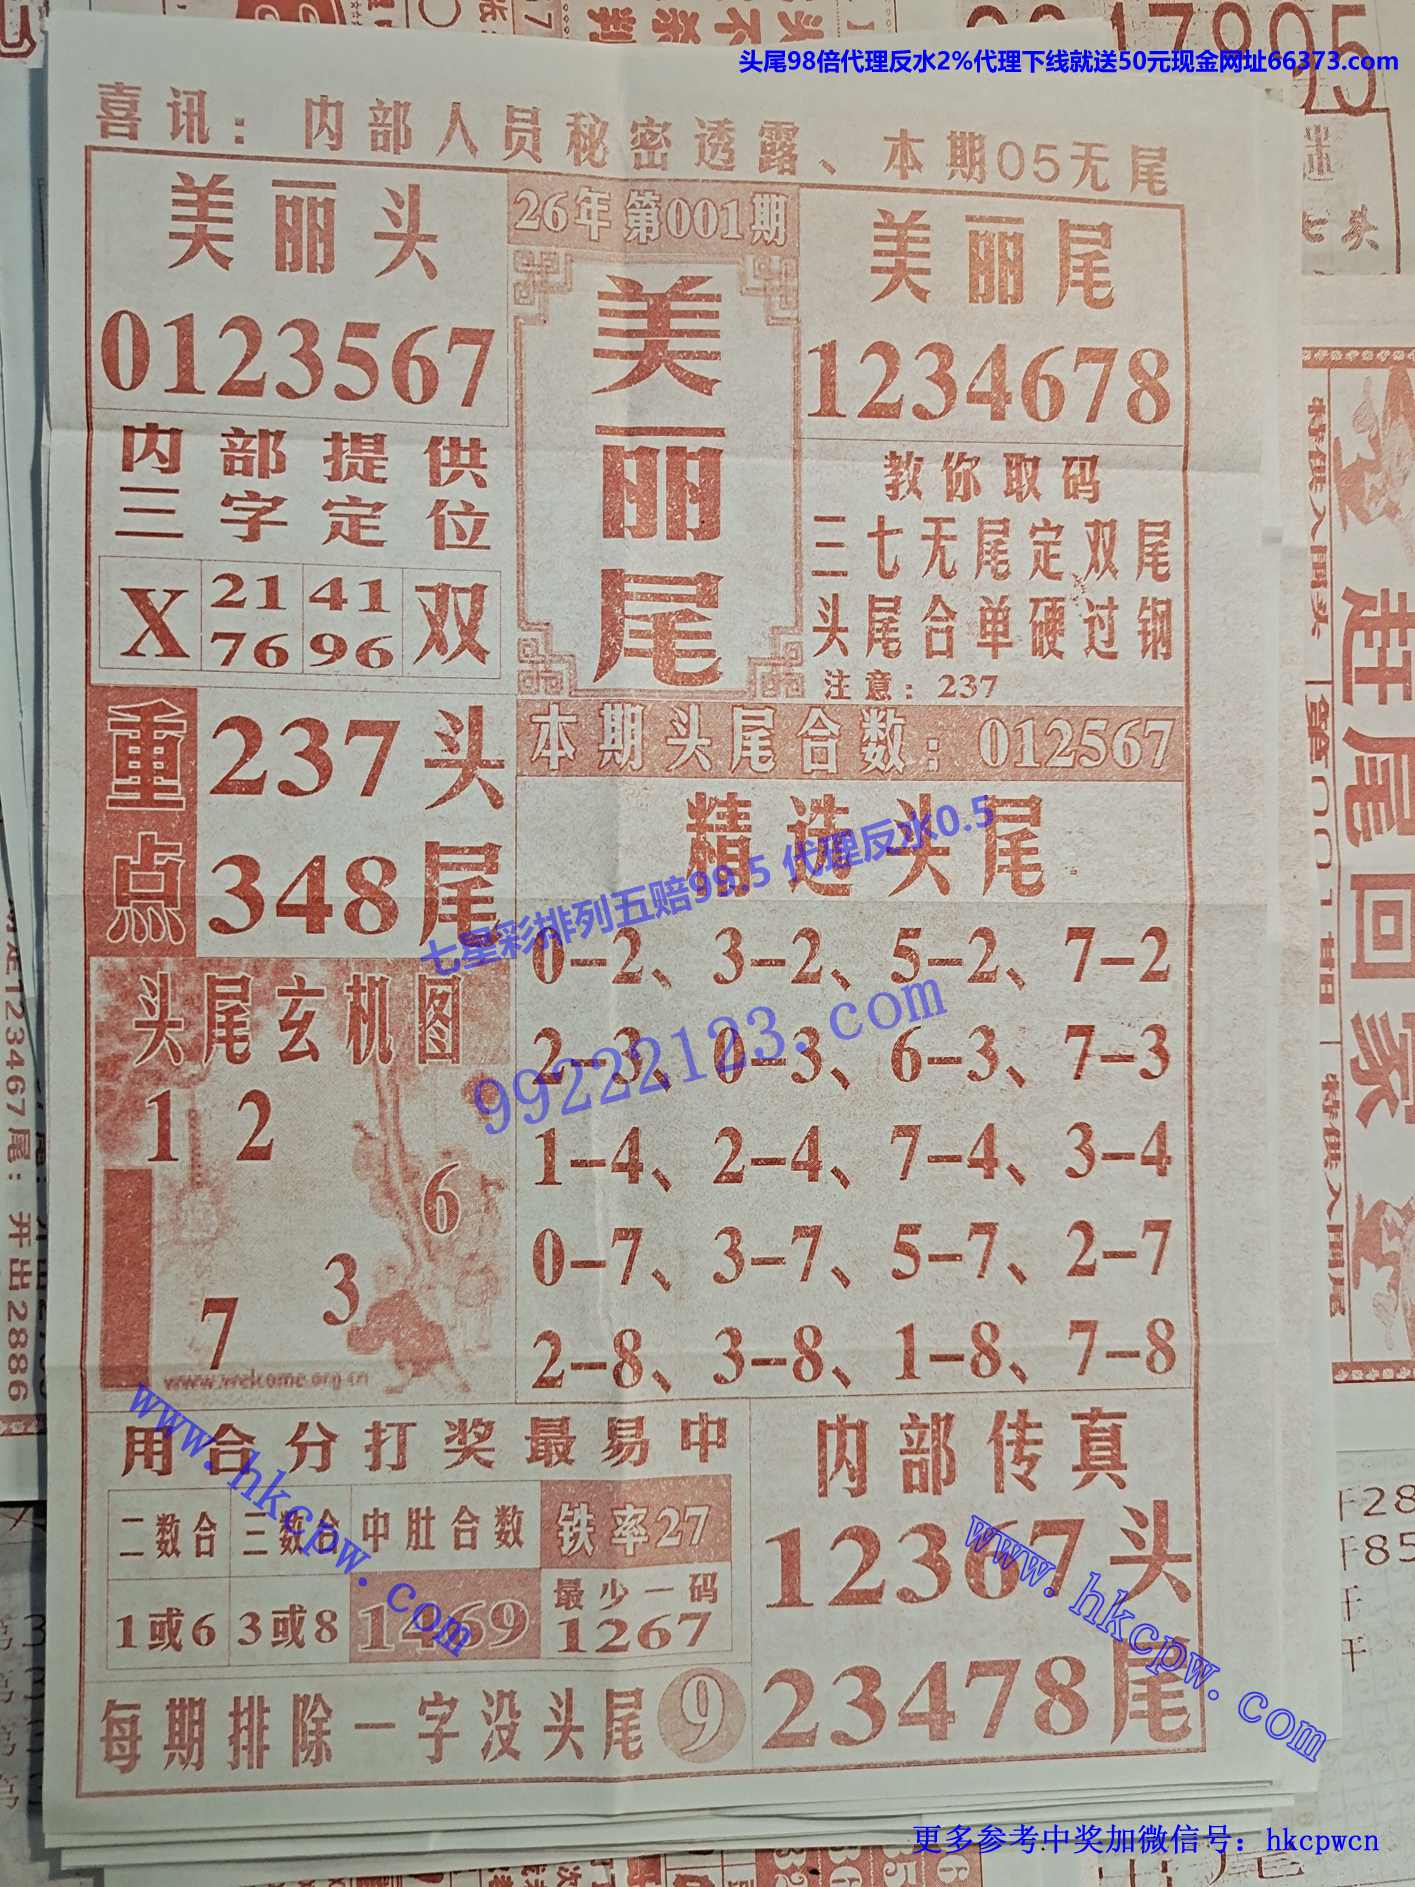 头尾98倍代理反水2%代理下线就送50元现金网址66373.com
喜讯：内部人员秘密透露、本期05无尾
美丽头
0123567
26年第001期
美丽尾
美丽尾
1234678
内部提供
三字定位
X 21 41 双
76 96
教你取码
三七无尾定双尾
头尾合单硬过钢
注意：237
重点
237头
348尾
本期头尾合数：012567
精选头尾
0-2、3-2、5-2、7-2
2-3、0-3、6-3、7-3
1-4、2-4、7-4、3-4
0-7、3-7、5-7、2-7
2-8、3-8、1-8、7-8
七星彩排列五赔99.5 代理反水0.5
99222123.com
头尾玄机图
1 2
6
3
7
www.welcome.org.cn
用合分打奖最易中
二数合 三数合 中肚合数 铁率27
1或6 3或8 1469 最少一码
1267
每期排除一字没头尾 9
内部传真
12367头
23478尾
www.hkcpw.com
www.hkcpw.com
更多参考中奖加微信号：hkcpwcn
赶尾回家
特供入围头
第001期
特供入围尾
123467尾：开出2886